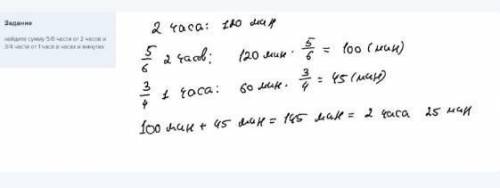 Задание
найдите сумму 5/6 части от 2 часов и
3/4 части от 1 часа в часах и минутах
2 часа: 120 мин
5/6 2 часов; 120 мин · 5/6 = 100 (мин)
3/4 1 часа: 60 мин · 3/4 = 45 (мин)
100 мин + 45 мин = 145 мин = 2 часа 25 мин